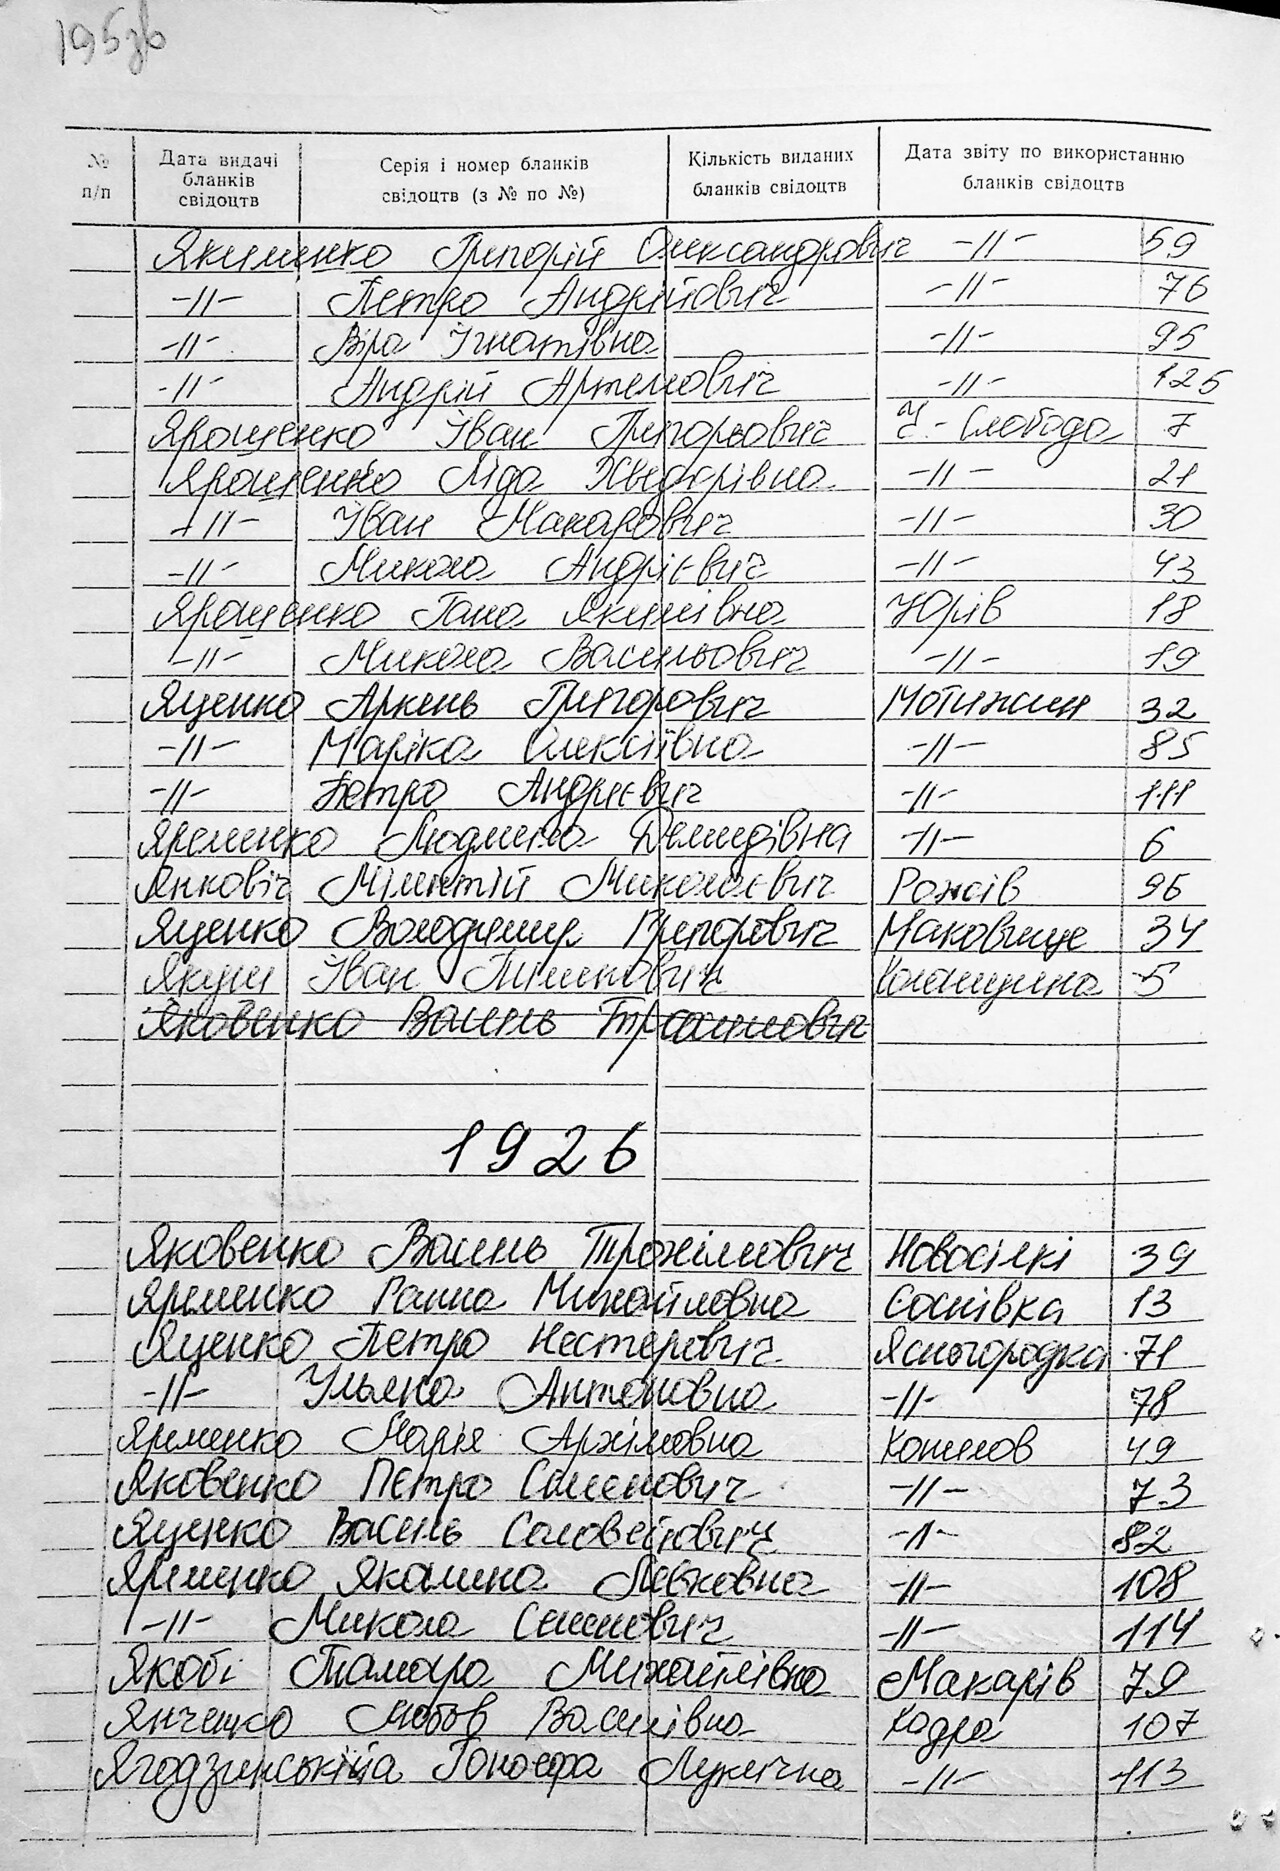 195зв
№ п/п
Дата видачі бланків свідоцтв
Серія і номер бланків свідоцтв (з № по №)
Кількість виданих бланків свідоцтв
Дата звіту по використанню бланків свідоцтв
Якименко Григорій Олександрович -//- 59
-//- Петро Андрійович -//- 76
-//- Віра Ігнатівна -//- 95
-//- Андрій Артемович -//- 125
Ярощенко Іван Григорьович Ч.-Слобода 7
Ярощенко Ліда Хведорівна -//- 21
-//- Іван Макарович -//- 30
-//- Микола Андрієвич -//- 43
Ярощенко Гана Якимівна Юрів 18
-//- Микола Васильович -//- 19
Яценко Аркень Григорович Мотижин 32
-//- Маріка Олексіївна -//- 85
-//- Петро Андрієвич -//- 111
Яременко Людмила Демидівна -//- 6
Янковіч Мілентій Миколаєвич Рожів 96
Яценко Володимир Григорович Маковище 34
Якуш Іван Пилипович Колонщина 5
Яковенко Василь Трохимович
1926
Яковенко Василь Трохімович Новосілкі 39
Яременко Ганна Михайловна Соснівка 13
Яценко Петро Нестерович Ясногородка 71
-//- Ульяна Антоновна -//- 78
Яременко Марія Архімовна Копилов 49
Яковенко Петро Семенович -//- 73
Яценко Василь Соловейович -//- 82
Яременко Якилина Левковна -//- 108
-//- Микола Семенович -//- 114
Якобі Тамара Михайлівна Макарів 79
Янченко Любов Василівна Кодра 107
Ягодзинськійа Гонофра Лукічна -//- 113